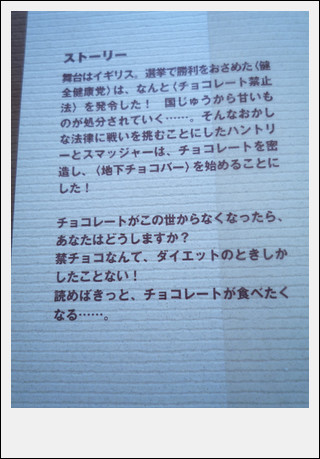 ストーリー
舞台はイギリス。選挙で勝利をおさめた〈健
全健康党〉は、なんと〈チョコレート禁止
法〉を発令した！　国じゅうから甘いも
のが処分されていく……。そんなおかし
な法律に戦いを挑むことにしたハントリ
ーとスマッジャーは、チョコレートを密
造し、〈地下チョコバー〉を始めることに
した！
チョコレートがこの世からなくなったら、
あなたはどうしますか？
禁チョコなんて、ダイエットのときしか
したことない！
読めばきっと、チョコレートが食べたく
なる……。